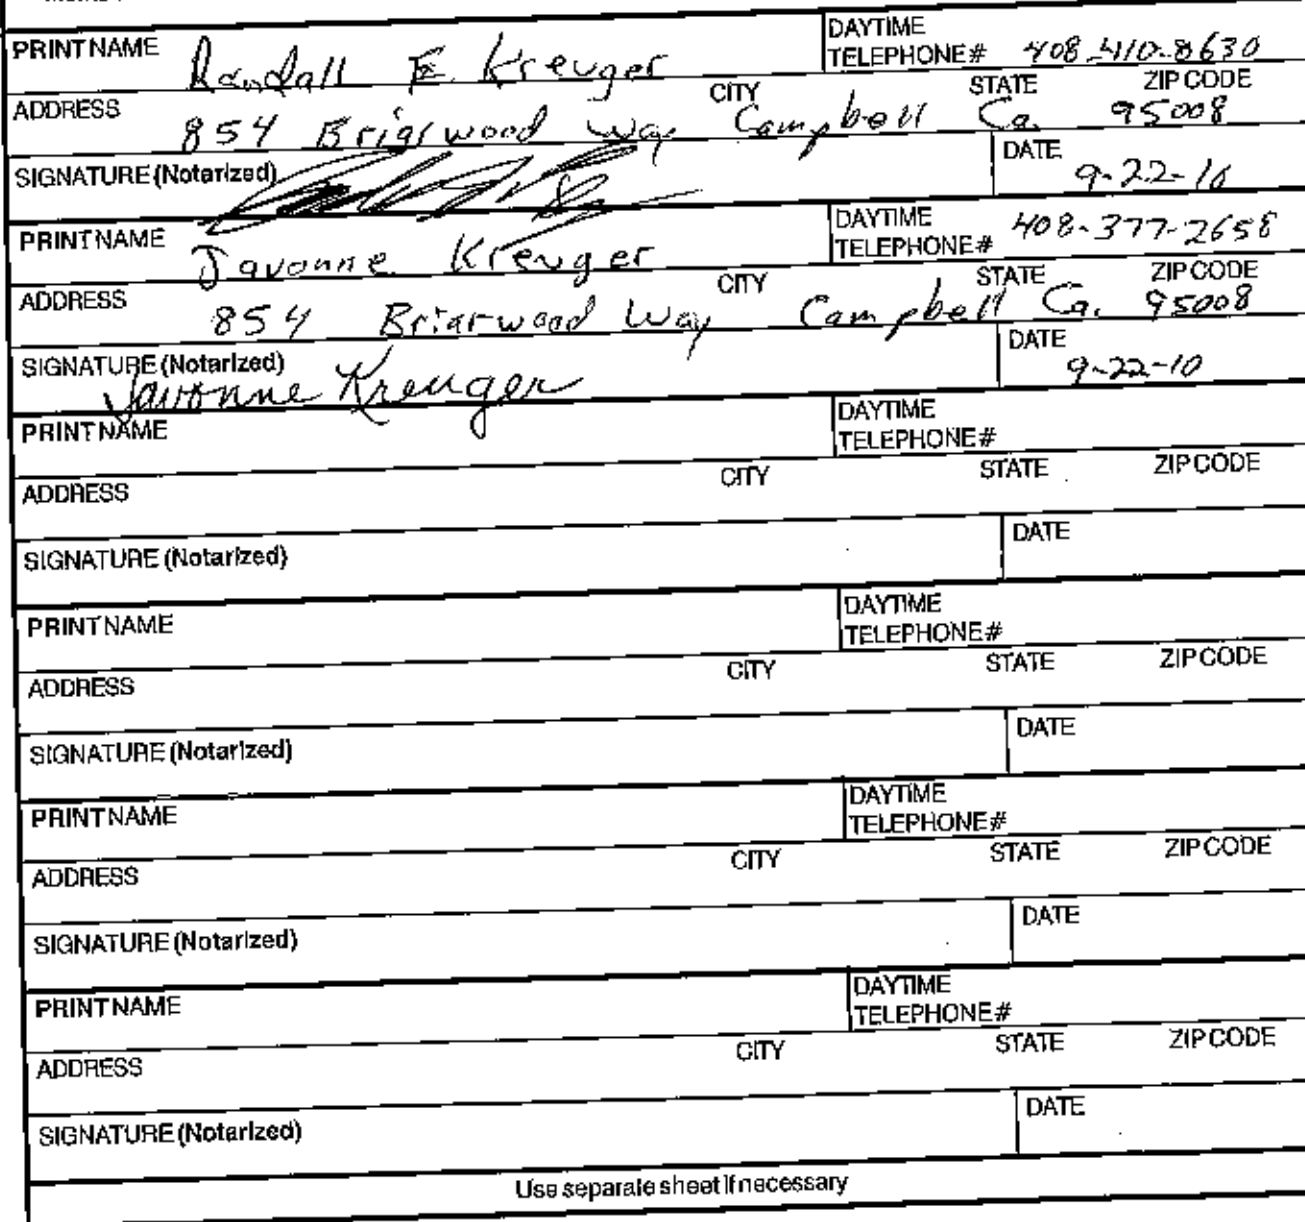 PRINT NAME Randall E. Kreuger DAYTIME TELEPHONE# 408-410-8630
ADDRESS 854 Briarwood Way CITY Campbell STATE Ca. ZIP CODE 95008
SIGNATURE (Notarized) DATE 9-22-10
PRINT NAME Javonne Kreuger DAYTIME TELEPHONE# 408-377-2658
ADDRESS 854 Briarwood Way CITY Campbell STATE Ca. ZIP CODE 95008
SIGNATURE (Notarized) Javonne Kreuger DATE 9-22-10
PRINT NAME DAYTIME TELEPHONE#
ADDRESS CITY STATE ZIP CODE
SIGNATURE (Notarized) DATE
PRINT NAME DAYTIME TELEPHONE#
ADDRESS CITY STATE ZIP CODE
SIGNATURE (Notarized) DATE
PRINT NAME DAYTIME TELEPHONE#
ADDRESS CITY STATE ZIP CODE
SIGNATURE (Notarized) DATE
PRINT NAME DAYTIME TELEPHONE#
ADDRESS CITY STATE ZIP CODE
SIGNATURE (Notarized) DATE
Use separate sheet if necessary